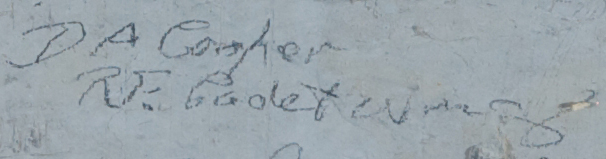 D A Cosher
R.E. Cadet Wing